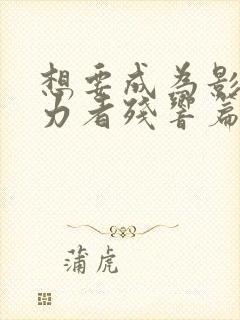 想要成为影
力者残响篇
蒲虎